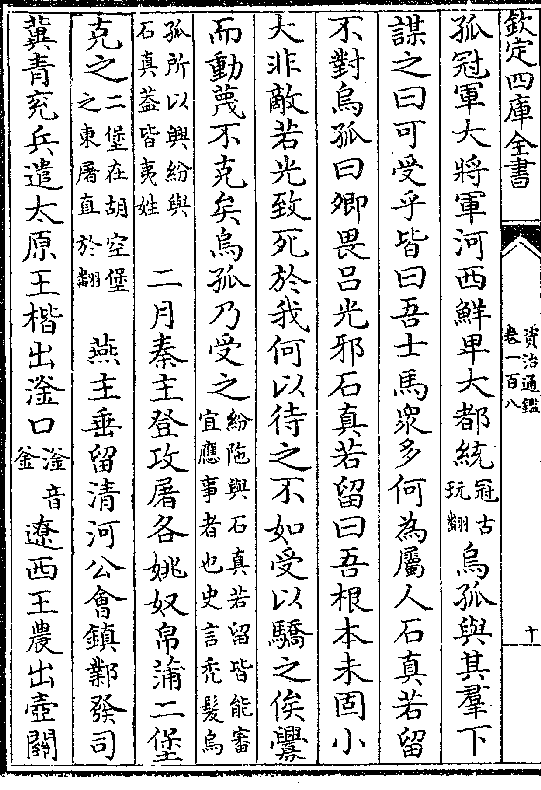 欽定四庫全書
資治通鑑
卷一百八
十
孤冠軍大將軍河西鮮卑大都統冠古玩翻烏孤與其羣下
謀之曰可受乎皆曰吾士馬衆多何為屬人石真若留
不對烏孤曰卿畏呂光邪石真若留曰吾根本未固小
大非敵若光致死於我何以待之不如受以驕之俟釁
而動蔑不克矣烏孤乃受之紛陁與石真若留皆能審宜應事者也史言禿髮烏
孤所以興紛與石真蓋皆夷姓 二月秦主登攻屠各姚奴帛蒲二堡
克之二堡在胡空堡之東屠直於翻 燕主垂留清河公會鎮鄴發司
冀青兖兵遣太原王楷出滏口滏音釜遼西王農出壺關